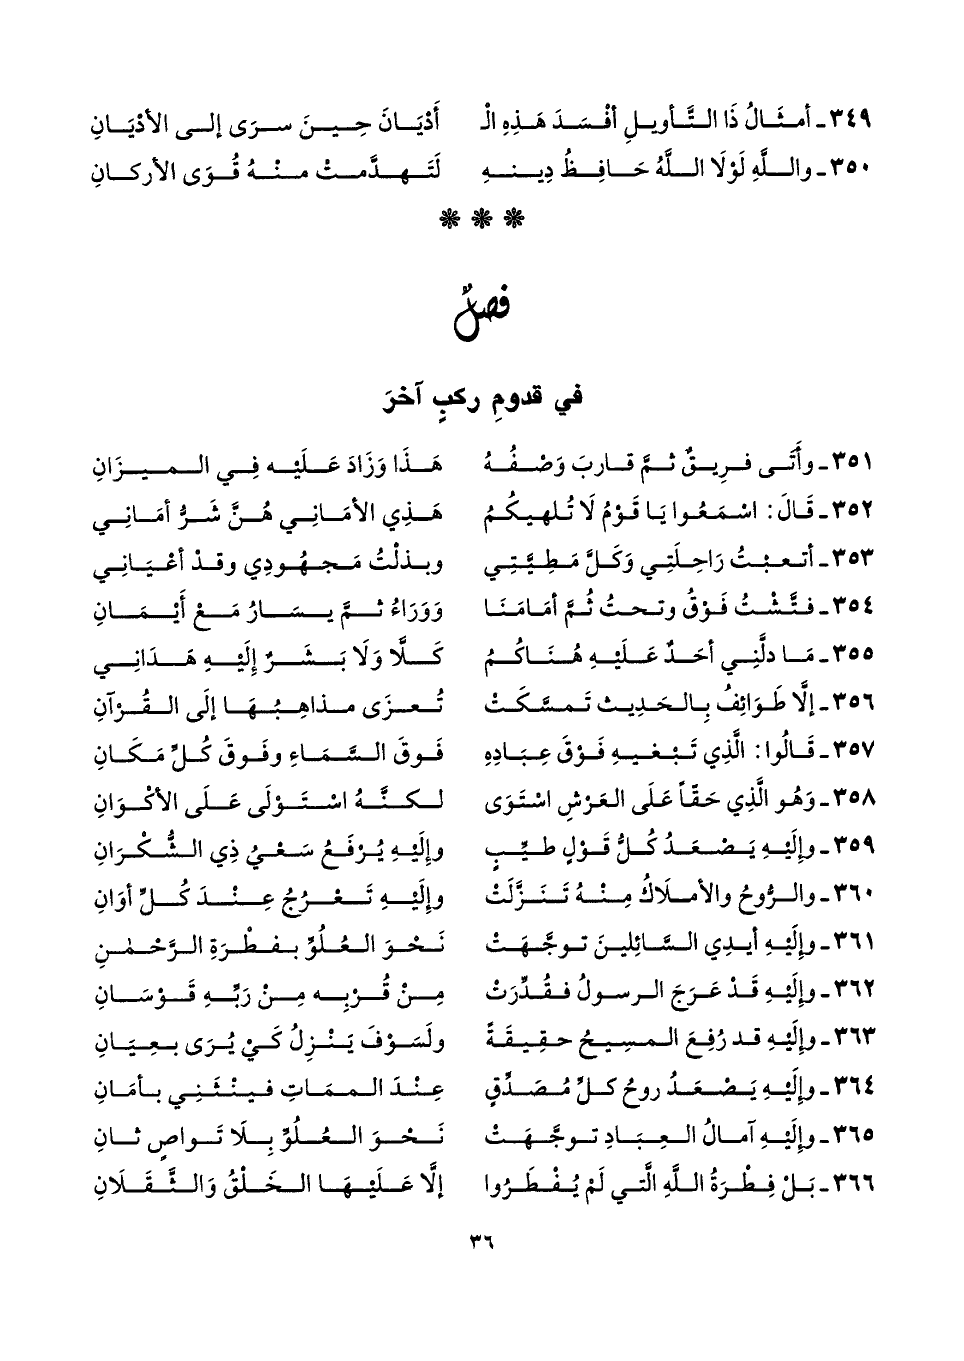 ٣٤٩ـ أمثَالُ ذَا التَّأويلِ أفْسَدَ هَذِهِ الْـ أَدْيَانَ حِينَ سرَى إلى الأدْيَانِ
٣٥٠ـ واللَّهِ لَوْلَا اللَّهُ حَافِظُ دِينِهِ لَتَهدَّمتْ منْهُ قُوَى الأركانِ
❋ ❋ ❋
فصلٌ
في قدومِ ركبٍ آخرَ
٣٥١ـ وأَتَى فريقٌ ثمَّ قاربَ وَصْفُهُ هَذَا وَزَادَ عَلَيْهِ فِي الميزَانِ
٣٥٢ـ قَالَ: اسْمَعُوا يَا قَوْمُ لَا تُلهِيكُمُ هَذِي الأمَانِي هُنَّ شَرُّ أمَانِي
٣٥٣ـ أتعبْتُ رَاحِلَتِي وَكَلَّ مَطِيَّتِي وبذلْتُ مَجهُودِي وقدْ أعْيَانِي
٣٥٤ـ فتَّشْتُ فَوْقُ وتحتُ ثُمَّ أمَامَنَا وَوَرَاءُ ثمَّ يسَارُ مَعْ أَيْمَانِ
٣٥٥ـ مَا دلَّنِي أحَدٌ عَلَيْهِ هُنَاكُمُ كَلَّا وَلَا بَشَرٌ إلَيْهِ هَدَانِي
٣٥٦ـ إلَّا طَوَائِفُ بِالحَدِيثِ تَمسَّكَتْ تُعزَى مذاهِبُهَا إلَى القُرْآنِ
٣٥٧ـ قَالُوا: الَّذِي تَبْغيهِ فَوْقَ عِبَادِهِ فَوقَ السَّمَاءِ وفَوقَ كُلِّ مَكَانِ
٣٥٨ـ وَهُو الَّذِي حَقّاً عَلَى العَرْشِ اسْتَوَى لكنَّهُ اسْتَوْلَى عَلَى الأكْوَانِ
٣٥٩ـ وإلَيْهِ يَصْعَدُ كُلُّ قَوْلٍ طيِّبٍ وإلَيْهِ يُرْفَعُ سَعْيُ ذِي الشُّكْرَانِ
٣٦٠ـ والرُّوحُ والأملَاكُ مِنْهُ تَنَزَّلَتْ وإلَيْهِ تَعْرُجُ عِنْدَ كُلِّ أوَانِ
٣٦١ـ وإلَيْهِ أيدِي السَّائِلِينَ توجَّهَتْ نَحْوَ العُلُوِّ بفطْرَةِ الرَّحْمٰنِ
٣٦٢ـ وإلَيْهِ قَدْ عَرَجَ الرسولُ فقُدِّرَتْ مِنْ قُرْبِهِ مِنْ رَبِّهِ قَوْسَانِ
٣٦٣ـ وإلَيْهِ قد رُفِعَ المسِيحُ حقِيقَةً ولَسَوْفَ يَنْزِلُ كَيْ يُرَى بعِيَانِ
٣٦٤ـ وإلَيْهِ يَصْعَدُ روحُ كلِّ مُصَدِّقٍ عِنْدَ المماتِ فينْثَنِي بأمَانِ
٣٦٥ـ وإلَيْهِ آمَالُ العِبَادِ توجَّهَتْ نَحْوَ العُلُوِّ بِلَا تَواصٍ ثانِ
٣٦٦ـ بَلْ فِطْرَةُ اللَّهِ الَّتِي لَمْ يُفْطَرُوا إلَّا عَلَيْهَا الخَلْقُ وَالثَّقَلَانِ
٣٦